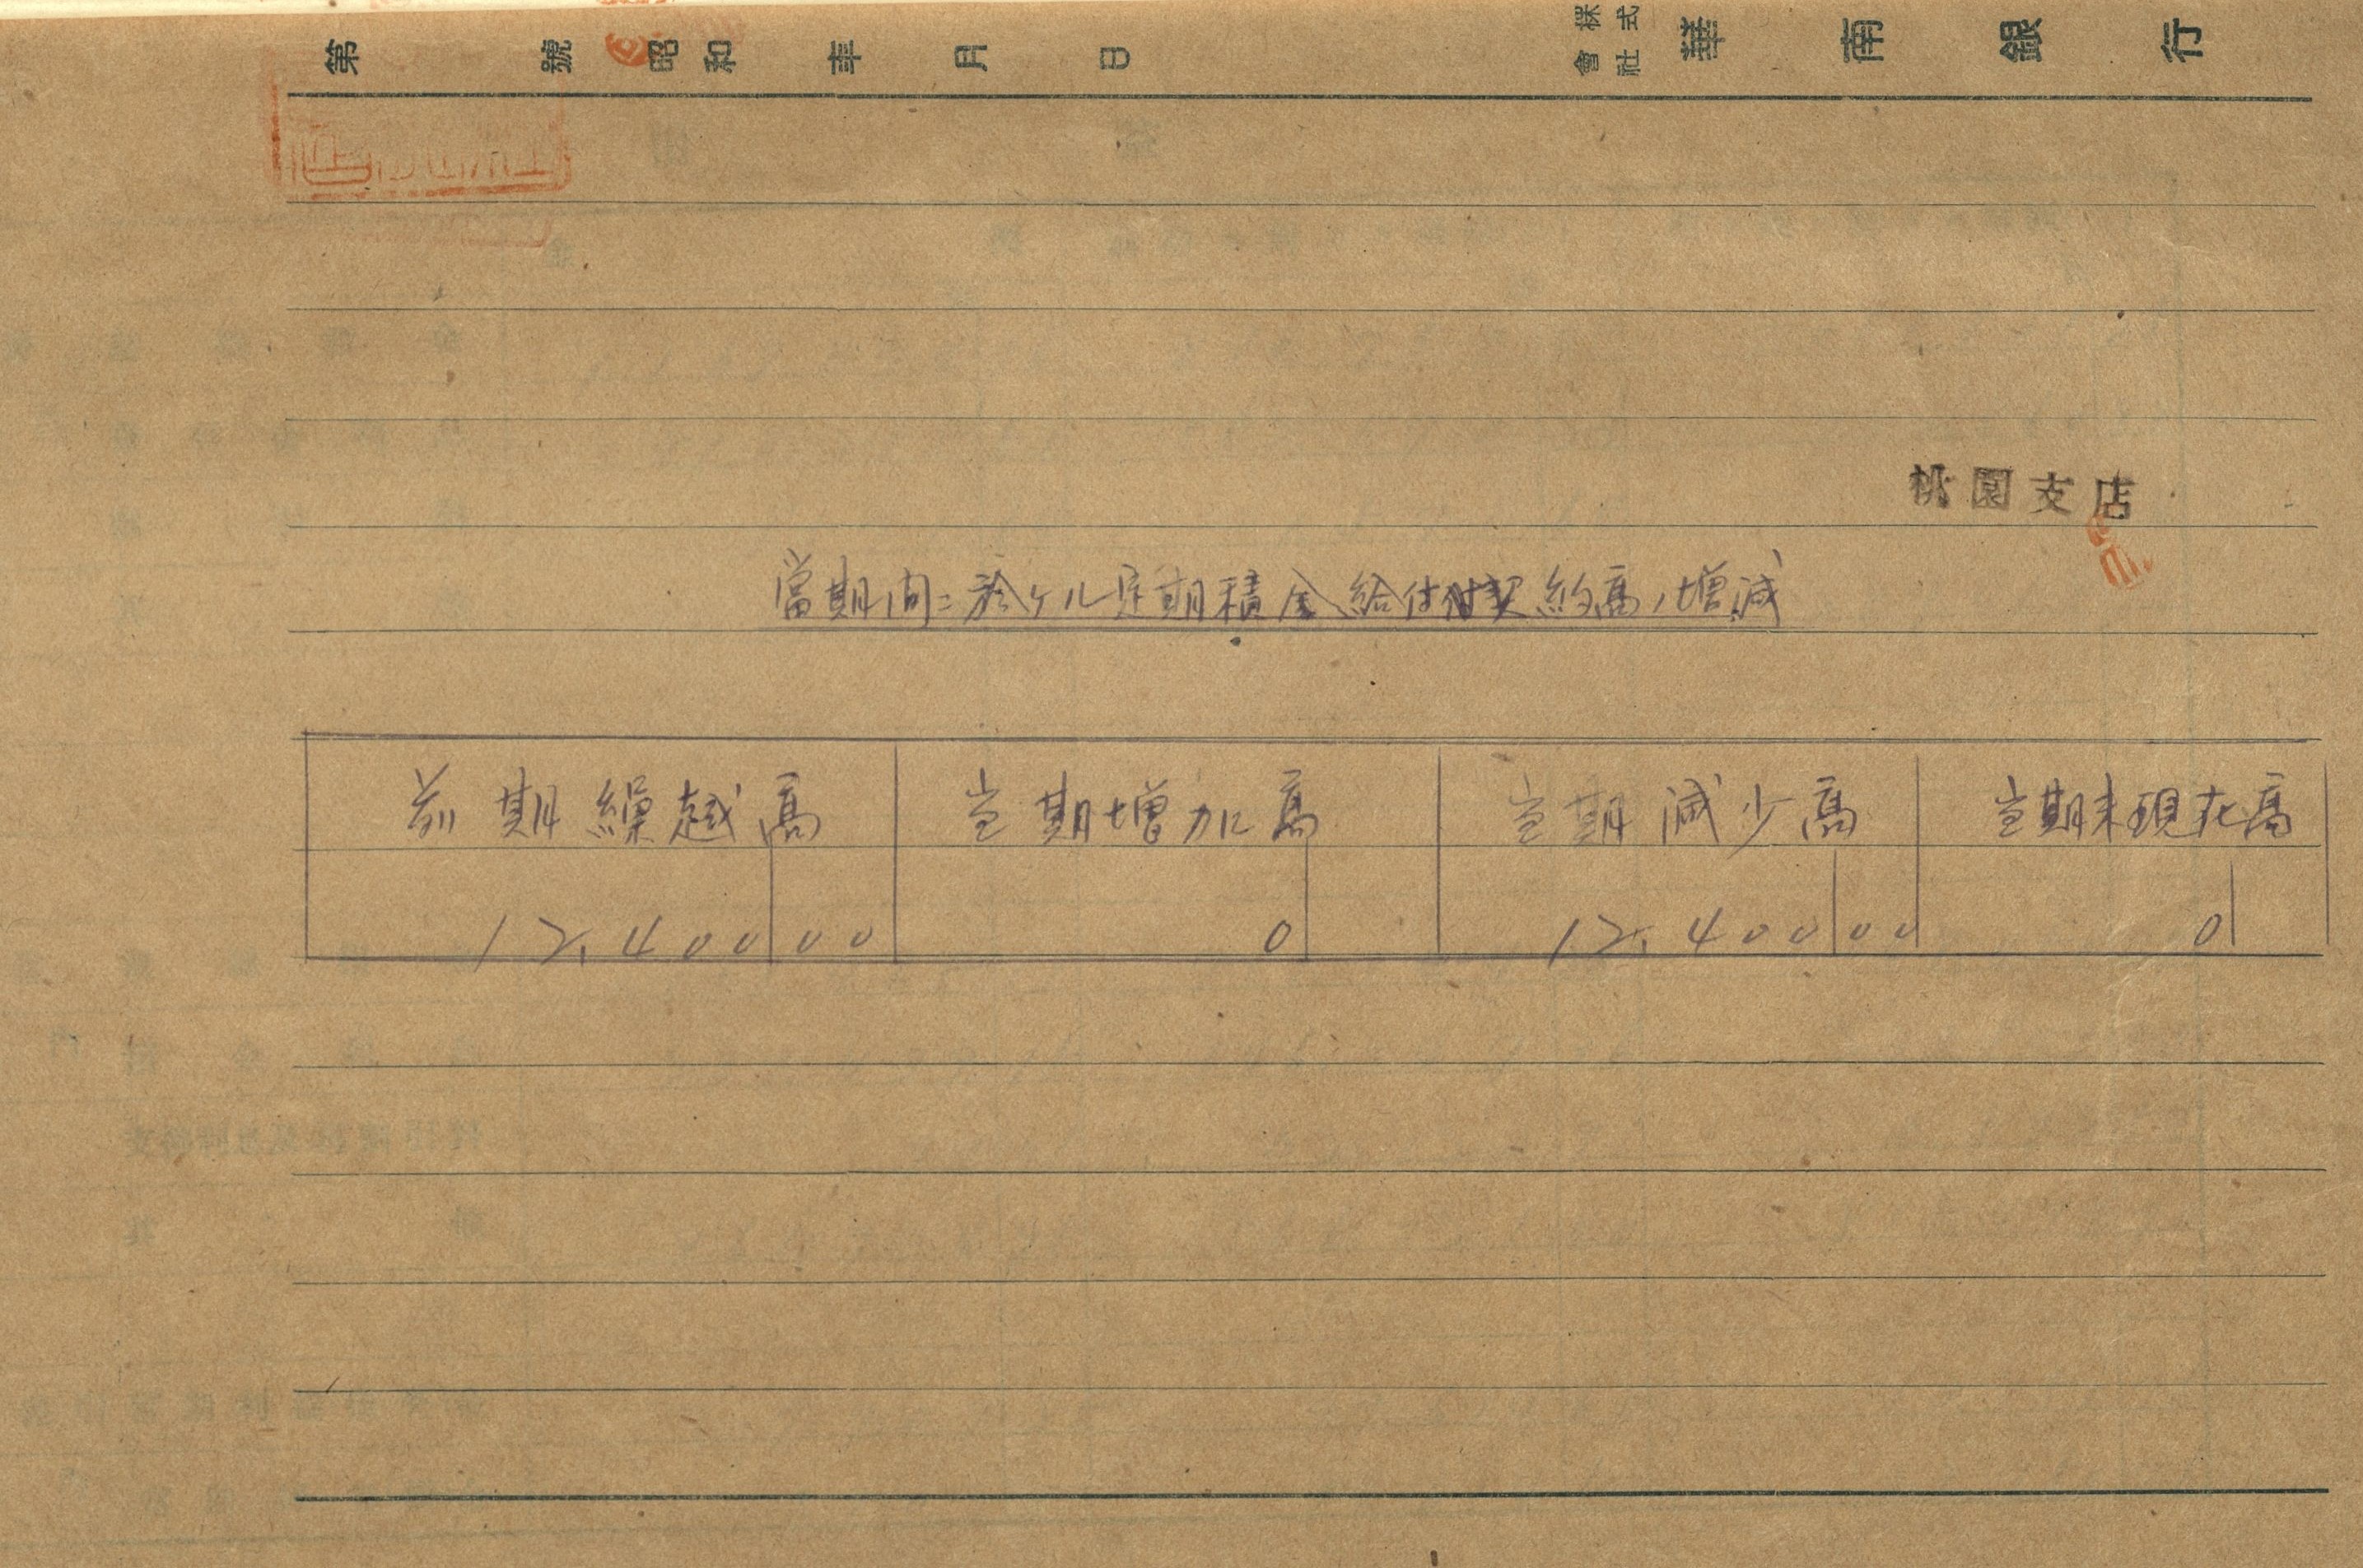 第 號 昭和 年 月 日 株式會社 華南銀行
桃園支店
當期間ニ於ケル定期積金給付契約高ノ増減
前期繰越高 当期増加高 当期減少高 当期末現在高
12,400 00 0 12,400 00 0